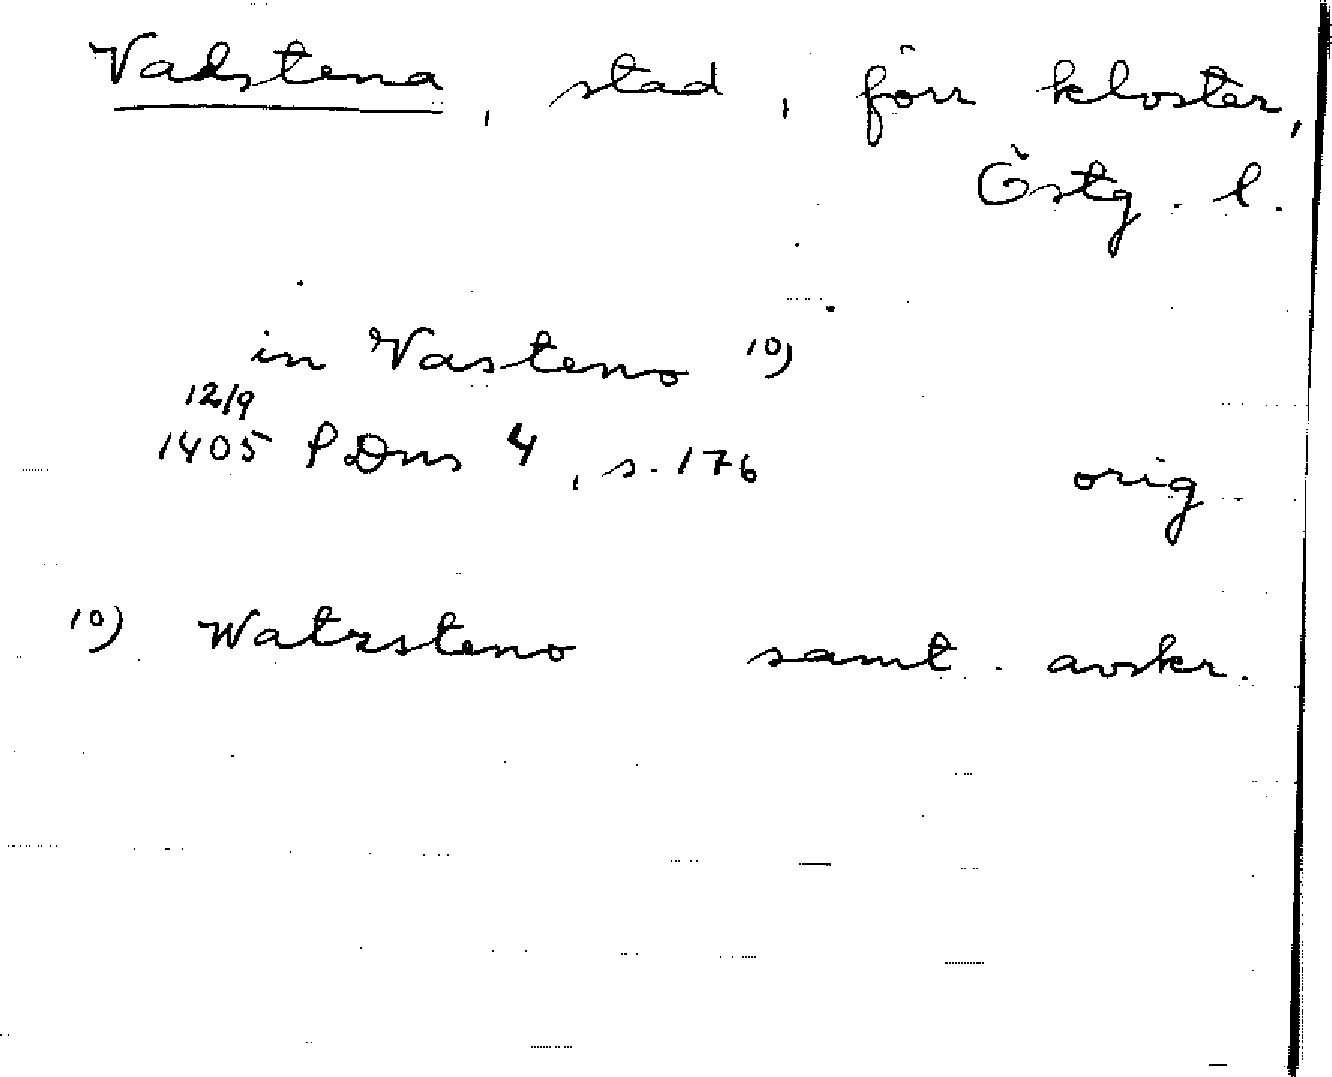 Vadstena, stad, förr kloster,
Östg. l.
in Vasteno 10)
12/9
1405 SDns 4, s. 176 orig
10) Watzsteno samt. avskr.